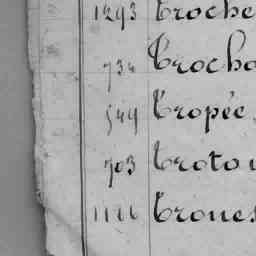 1293 Croche
734 Crocho
549 Cropée
703 Croto
1116 Croues